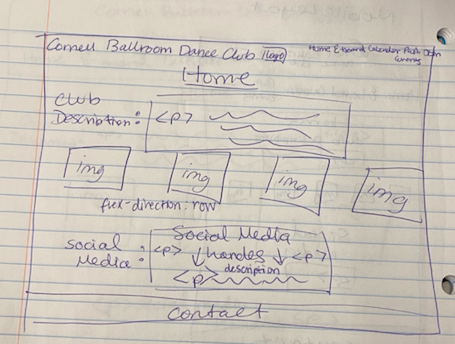 Cornell Ballroom Dance Club (logo) Home E-board Calendar Past Join
Home
Club
Description: <p>
img img img img
flex-direction: row
Social Media
social
Media: <p> ↓ handles ↓ <p>
description
<p>
Contact